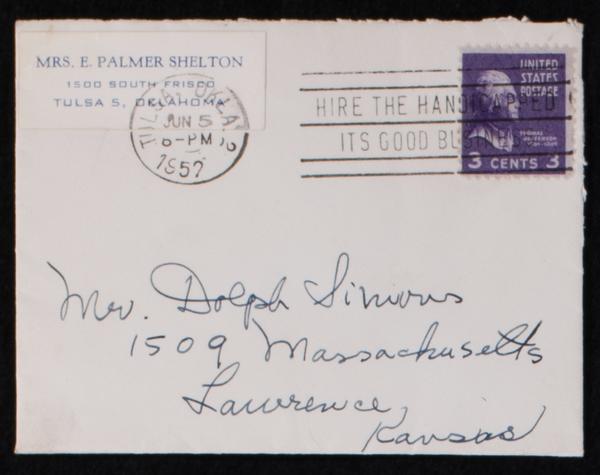 MRS. E. PALMER SHELTON
1500 SOUTH FRISCO
TULSA 5, OKLAHOMA
TULSA, OKLA.
JUN 5
6-PM
1957
HIRE THE HANDICAPPED
ITS GOOD BUSINESS
UNITED
STATES
POSTAGE
THOMAS
JEFFERSON
3 CENTS 3
Mr. Dolph Simons
1509 Massachusetts
Lawrence,
Kansas